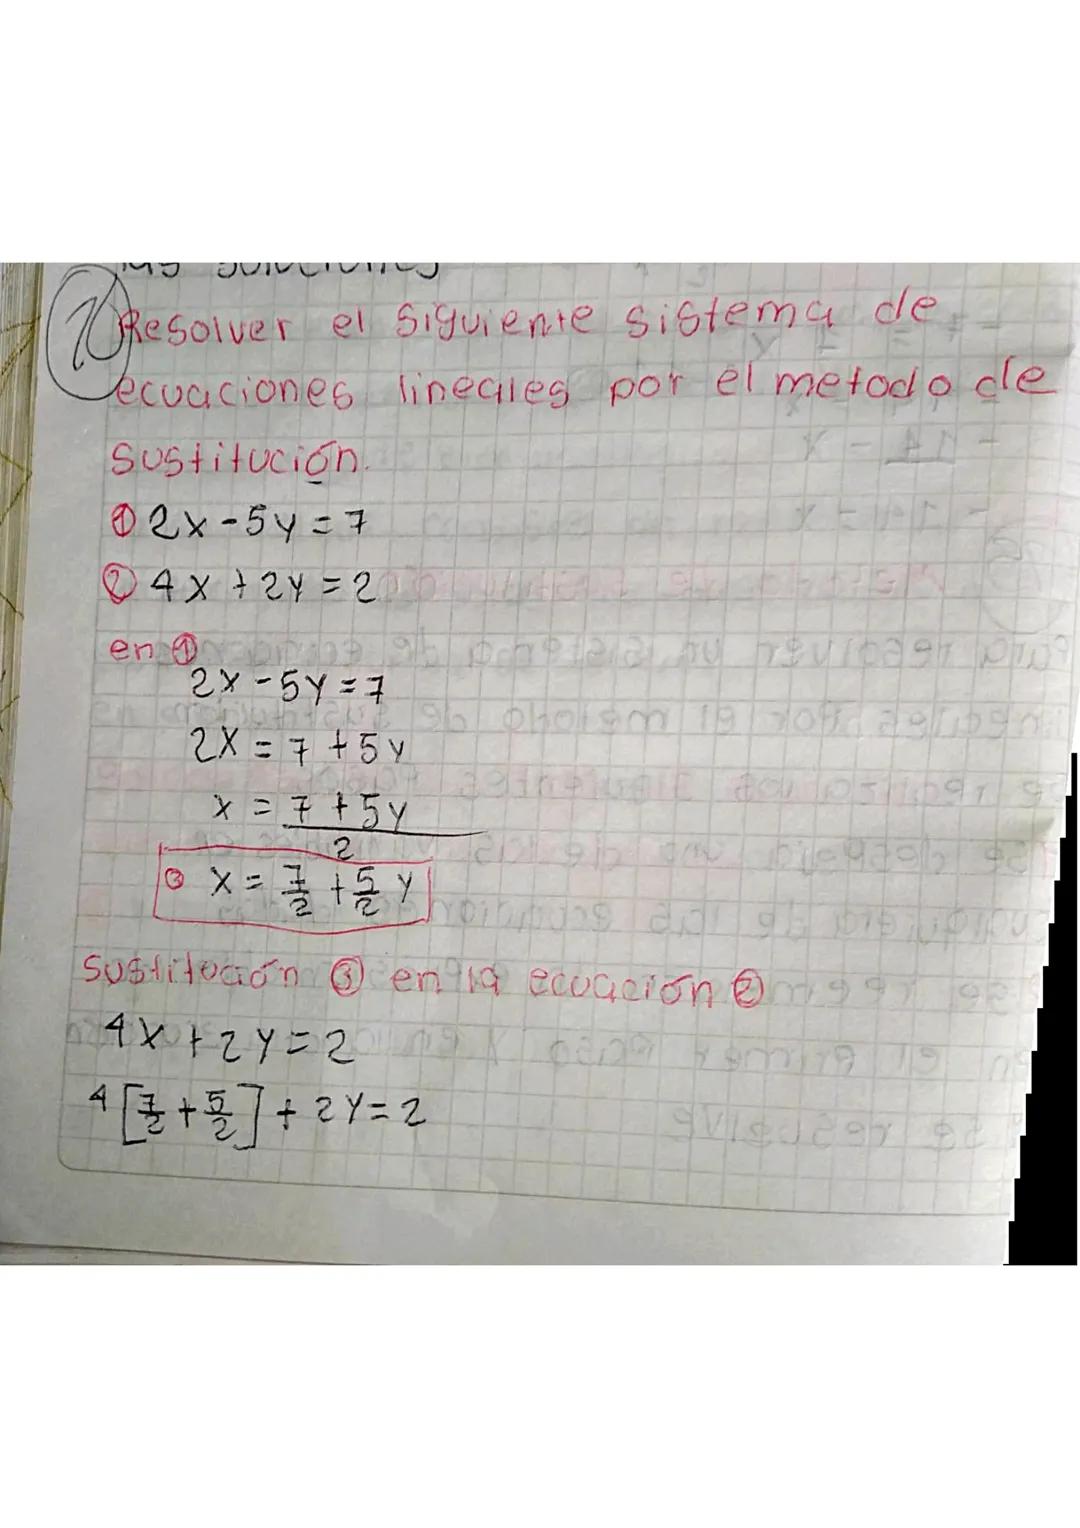 las soluciones
1 Resolver el siguiente sistema de
ecuaciones lineales por el metodo de
sustitución.
① 2x - 5y = 7
② 4x + 2y = 2
en ①
2x - 5y = 7
2x = 7 + 5y
x = 7 + 5y
2
③ x = 7/2 + 5/2 y
Sustitución ③ en la ecuación ②
4x + 2y = 2
4 [7/2 + 5/2] + 2y = 2